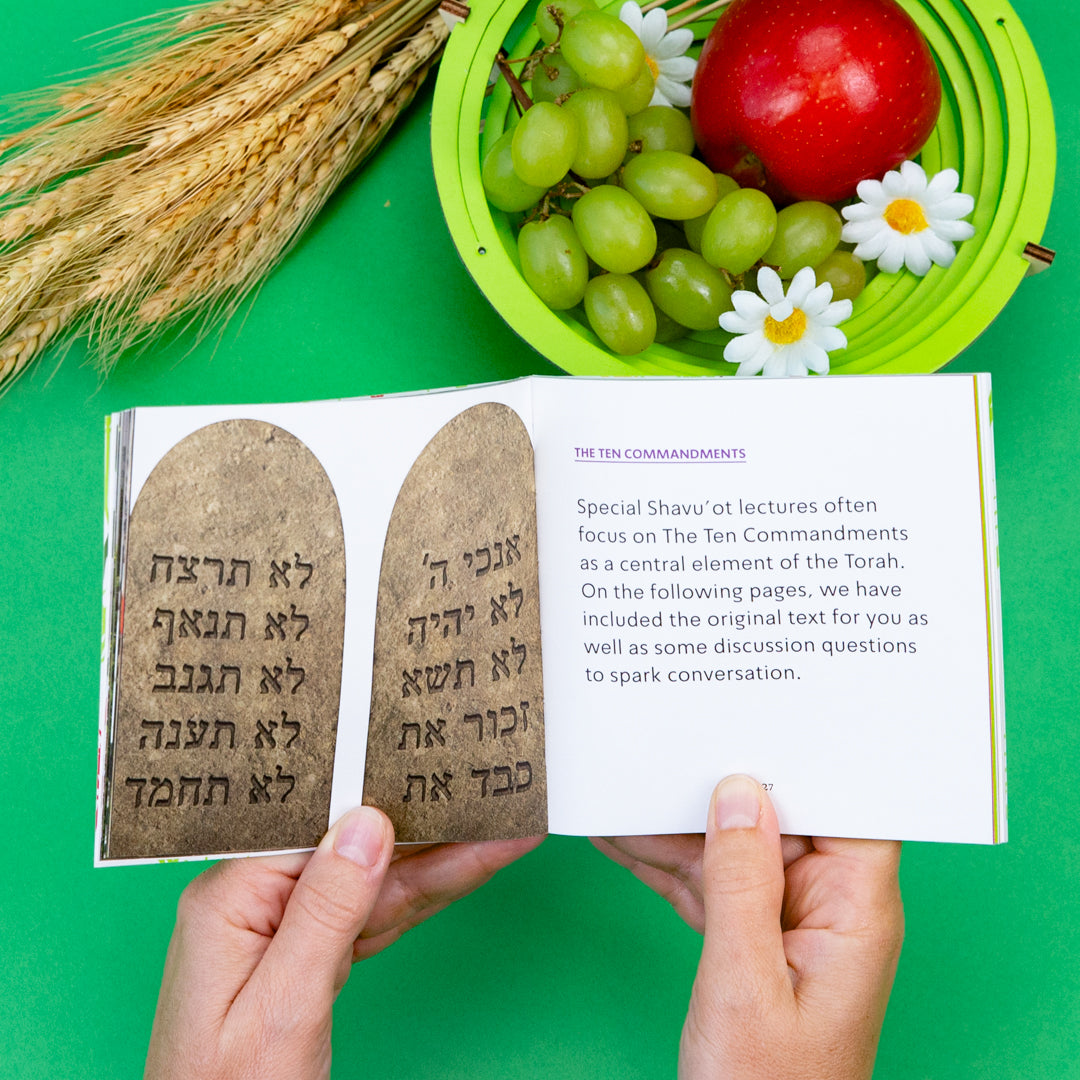 אנכי ה'
לא יהיה
לא תשא
זכור את
כבד את
לא תרצח
לא תנאף
לא תגנב
לא תענה
לא תחמד
THE TEN COMMANDMENTS
Special Shavu’ot lectures often
focus on The Ten Commandments
as a central element of the Torah.
On the following pages, we have
included the original text for you as
well as some discussion questions
to spark conversation.
27